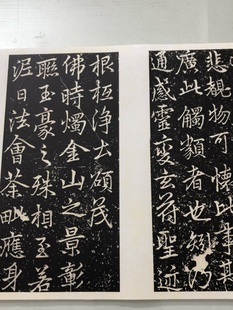 悲覩物可懷此事
廣此觸類者也矧乃
通感靈變玄符聖迹
根柢淨土碩茂
佛時燭金山之景彰
聯玉豪之殊相至若
涅日法會荼毗應身